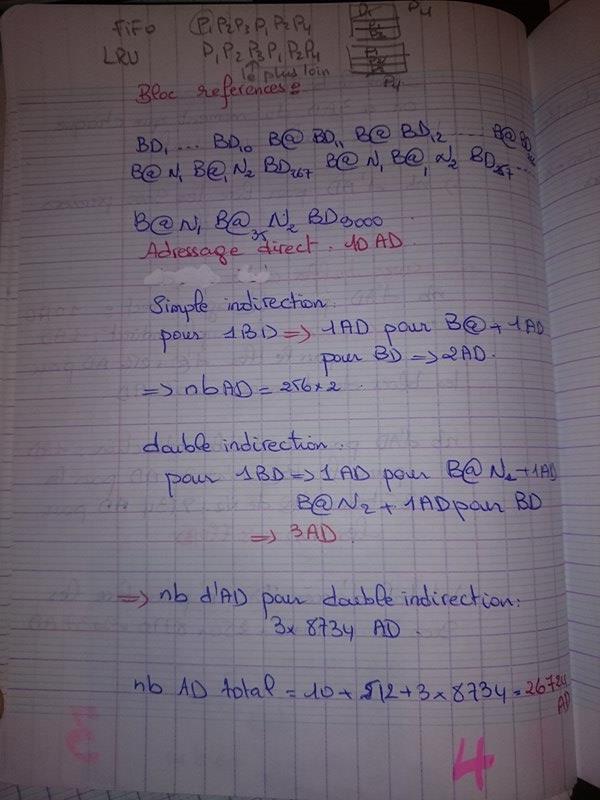 FiFo P1 P2 P3 P1 P2 P4
P4
LRU P1 P2 P3 P1 P2 P4
le plus loin
P4
Bloc references:
BD1 ... BD10 B@ BD11 B@ BD12 ...... B@ BD
B@ N1 B@1 N2 BD267 B@ N1 B@1 N2 BD267 ...
B@ N1 B@35 N2 BD9000
Adressage direct. 10 AD
Simple indirection.
pour 1BD => 1AD pour B@ + 1AD
pour BD => 2AD.
=> nb AD = 256 x 2
double indirection.
pour 1BD => 1AD pour B@ N1 + 1AD
B@ N2 + 1AD pour BD
=> 3AD.
=> nb d'AD pour double indirection:
3 x 8734 AD.
nb AD total = 10 + 512 + 3 x 8734 = 26724
AD
3
4